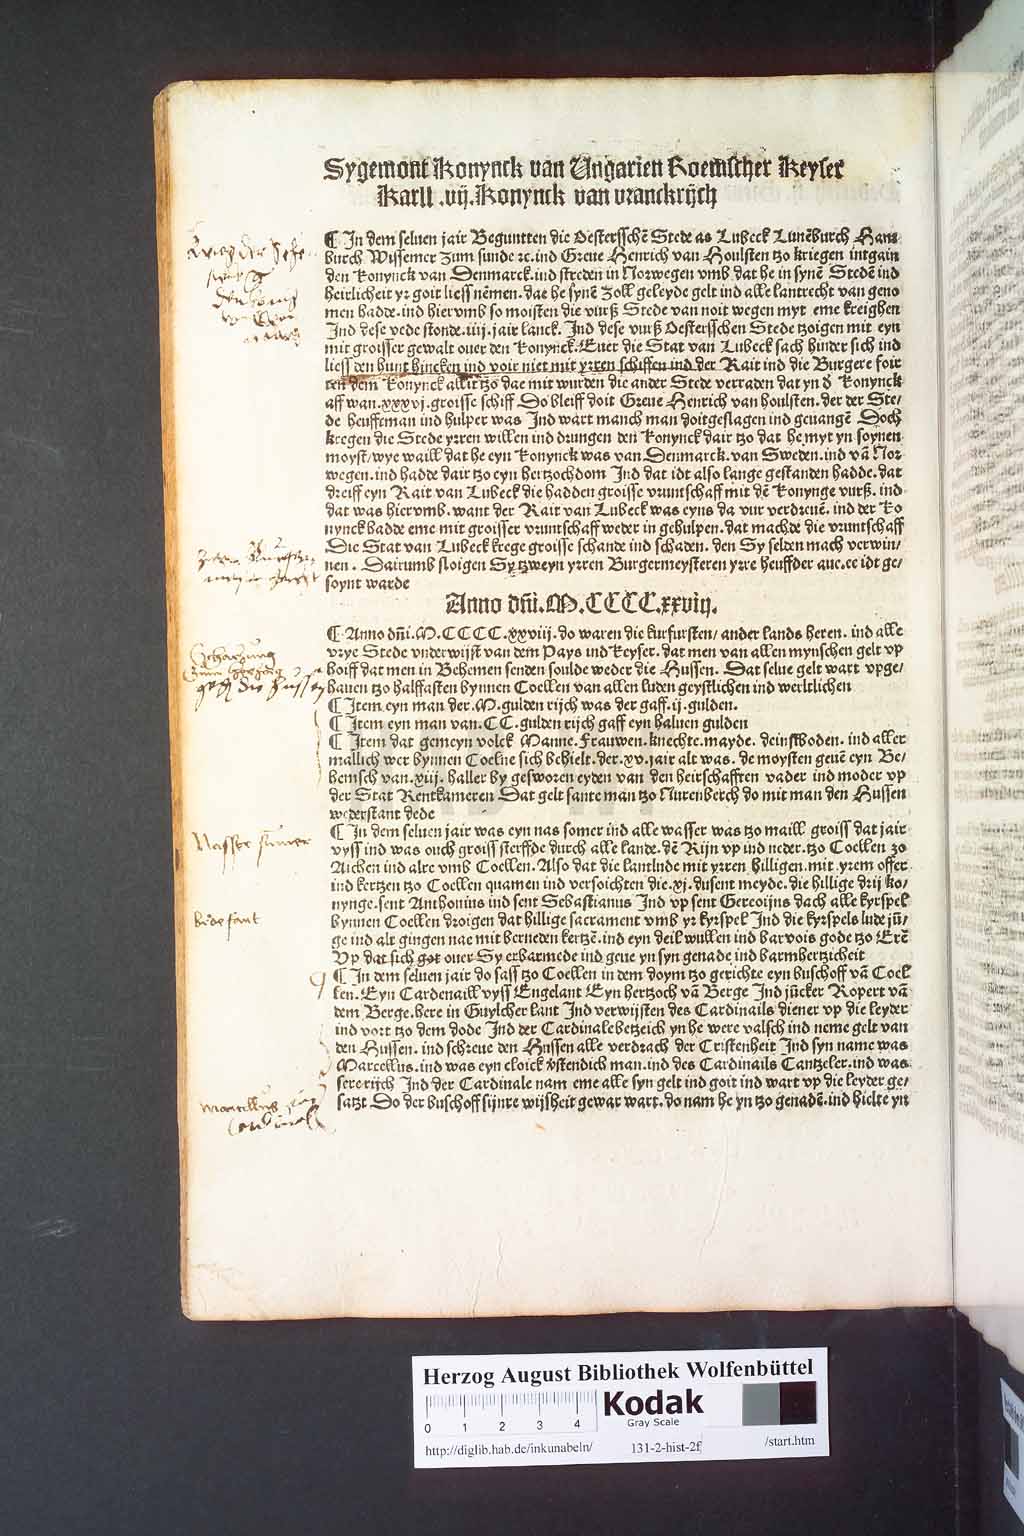 Sygemont Konynck van Ungarien Roemscher Keyser
Karll .vij. Konynck van vranckrijch
¶ In dem seluen jair Beguntten die Oestersschē Stede as Lubeck Lunēburch Ham
burch Wissemer Zum sunde ꝛc. ind Greue Henrich van Houlsten tzo kriegen intgain
den Konynck van Denmarck. ind streden in Norwegen vmb dat he in synē Stedē ind
heirlicheit yr goit liess nemen. dae he synē Zoll geleyde gelt ind alle lantrecht van geno
men hadde. ind hier vmb so moisten die vurß Stede van noit wegen myt eme kreighen
Ind dese vede stonde .iiij. jair lanck. Ind dese vurß Oesterschen Stede tzoigen mit eyn
mit groisser gewalt ouer den Konynck. Euer die Stat van Lubeck sach hinder sich ind
liess den hunt hincken ind voir niet mit yrren schiffen ind der Rait ind die Burgere foir
ten dem Konynck allit tzo dae mit wurden die ander Stede verraden dat yn d' Konynck
aff wan .xxxvj. groisse schiff Do bleiff doit Greue Henrich van houlsten. der der Ste/
de heufftman ind hulper was Ind wart manch man doitgeslagen ind geuangē Doch
kregen die Stede yrren willen ind drungen den Konynck dair tzo dat he myt yn soynen
moyst/wye waill dat he eyn Konynck was van Denmarck. van Sweden. ind vā Nor
wegen. ind hadde dair tzo eyn hertzochdom Ind dat idt also lange gestanden hadde. dat
dreiff eyn Rait van Lubeck die hadden groisse vruntschaff mit dē Konynge vurß. ind
dat was hier vmb. want der Rait van Lubeck was eyns da vur verdreuē. ind der Ko
nynck hadde eme mit groisser vruntschaff weder in gehulpen. dat machde die vruntschaff
Die Stat van Lubeck krege groisse schande ind schaden. den Sy selden mach verwin/
nen. Dairumb sloigen Sy tzweyn yrren Burgermeysteren yrre heuffder aue. ee idt ge/
soynt warde
Anno dñi. M. CCCC. xxviij.
¶ Anno dñi. M. CCCC. xxviij. do waren die kurfursten/ ander lands heren. ind alle
vrye Stede vnderwijst van dem Pays ind Keyser. dat men van allen mynschen gelt vp
hoiff dat men in Behemen senden soulde weder die Hussen. Dat selue gelt wart vpge/
hauen tzo halffasten bynnen Coellen van allen luden geystlichen ind werltlichen
¶ Item eyn man der .M. gulden rijch was der gaff .ij. gulden.
¶ Item eyn man van .CC. gulden rijch gaff eyn haluen gulden
¶ Item dat gemeyn volck Manne. Frauwen. knechte. mayde. deinstboden. ind aller
mallich wer bynnen Coelne sich behielt. der .xv. jair alt was. de moysten geuē eyn Be/
hemsch van .xiij. haller by gesworen eyden van den heirschafften vader ind moder vp
der Stat Rentkameren Dat gelt sante man tzo Nurenberch do mit man den Hussen
wederstant dede
¶ In dem seluen jair was eyn nas somer ind alle wasser was tzo maill groiss dat jair
vyss ind was ouch groiss sterffde durch alle lande. dē Rijn vp ind neder. tzo Coellen zo
Aichen ind alre vmb Coellen. Also dat die lantlude mit yrren hilligen. mit yrem offer
ind kertzen tzo Coellen quamen ind versoichten die .xj. dusent meyde. die hillige drij ko/
nynge. sent Anthonius ind sent Sebastianus Ind vp sent Gereoijns dach alle kyrspel
bynnen Coellen droigen dat hillige sacrament vmb yr kyrspel Ind die kyrspels lude jū/
ge ind alt gingen nae mit berneden kertzē. ind eyn deil wullen ind barvois gode tzo Erē
Vp dat sich got ouer Sy erbarmede ind geue yn syn genade ind barmhertzicheit
¶ In dem seluen jair do sass tzo Coellen in dem doym tzo gerichte eyn buschoff vā Coel
len. Eyn Cardenaill vyss Engelant Eyn hertzoch vā Berge Ind jūcker Ropert vā
dem Berge. here in Guylcher lant Ind verwijsten des Cardinails diener vp die leyder
ind vort tzo dem dode Ind der Cardinale betzeich yn he were valsch ind neme gelt van
den Hussen. ind schreue den Hussen alle verdrach der Cristenheit Ind syn name was
Marcellus. ind was eyn cloick v'stendich man. ind des Cardinails Cantzeler. ind was
sere rijch Ind der Cardinale nam eme alle syn gelt ind goit ind wart vp die leyder ge/
satzt Do der buschoff sijnre wijsheit gewar wart. do nam he yn tzo genadē. ind hielte yn
Nasser sumer
bede fart
Herzog August Bibliothek Wolfenbüttel
0 1 2 3 4
Kodak
Gray Scale
http://diglib.hab.de/inkunabeln/ 131-2-hist-2f /start.htm